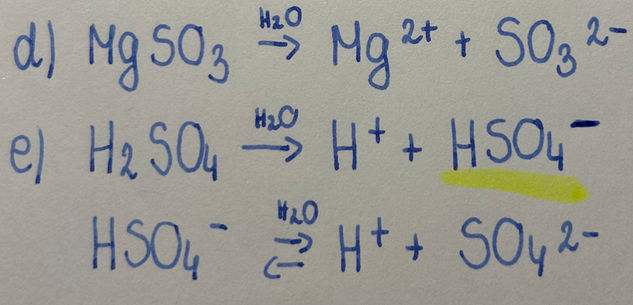 d) MgSO₃ →(H₂O) Mg²⁺ + SO₃²⁻
e) H₂SO₄ →(H₂O) H⁺ + HSO₄⁻
HSO₄⁻ ⇄(H₂O) H⁺ + SO₄²⁻